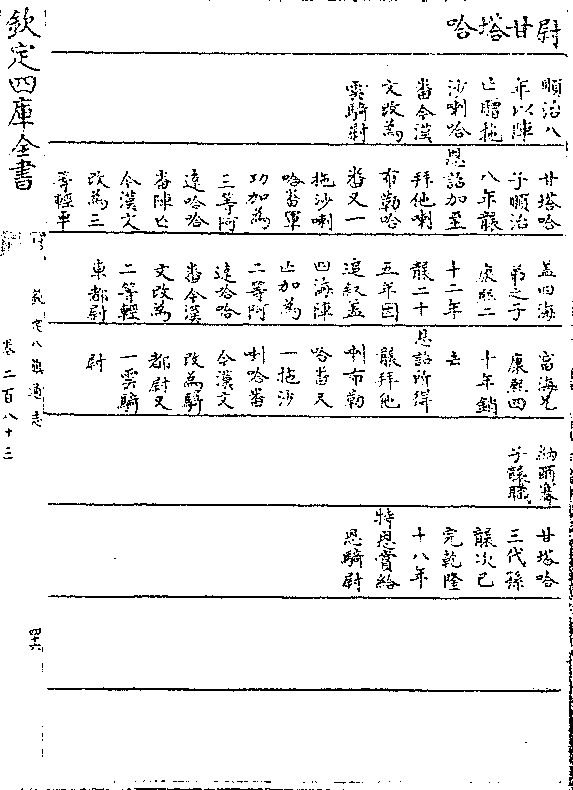 尉甘塔哈
順治八
年以陣
亡贈拖
沙喇哈
番今漢
文改為
雲騎尉
甘塔哈
子順治
八年襲
恩詔加至
拜他喇
布勒哈
番又一
拖沙喇
哈番軍
功加為
三等阿
達哈哈
番陣亡
今漢文
改為三
等輕車
盖四海
弟之子
康熙二
十二年
襲二十
五年因
追叙盖
四海陣
亡加為
二等阿
達哈哈
番今漢
文改為
二等輕
車都尉
富海兄
康熙四
十年銷
去
恩詔所得
襲拜他
喇布勒
哈番又
一拖沙
喇哈番
今漢文
改為騎
都尉又
一雲騎
尉
納爾賽
子襲職
甘塔哈
三代孫
襲次已
完乾隆
十八年
特恩賞給
恩騎尉
欽定四庫全書
欽定八旗通志
卷二百八十三